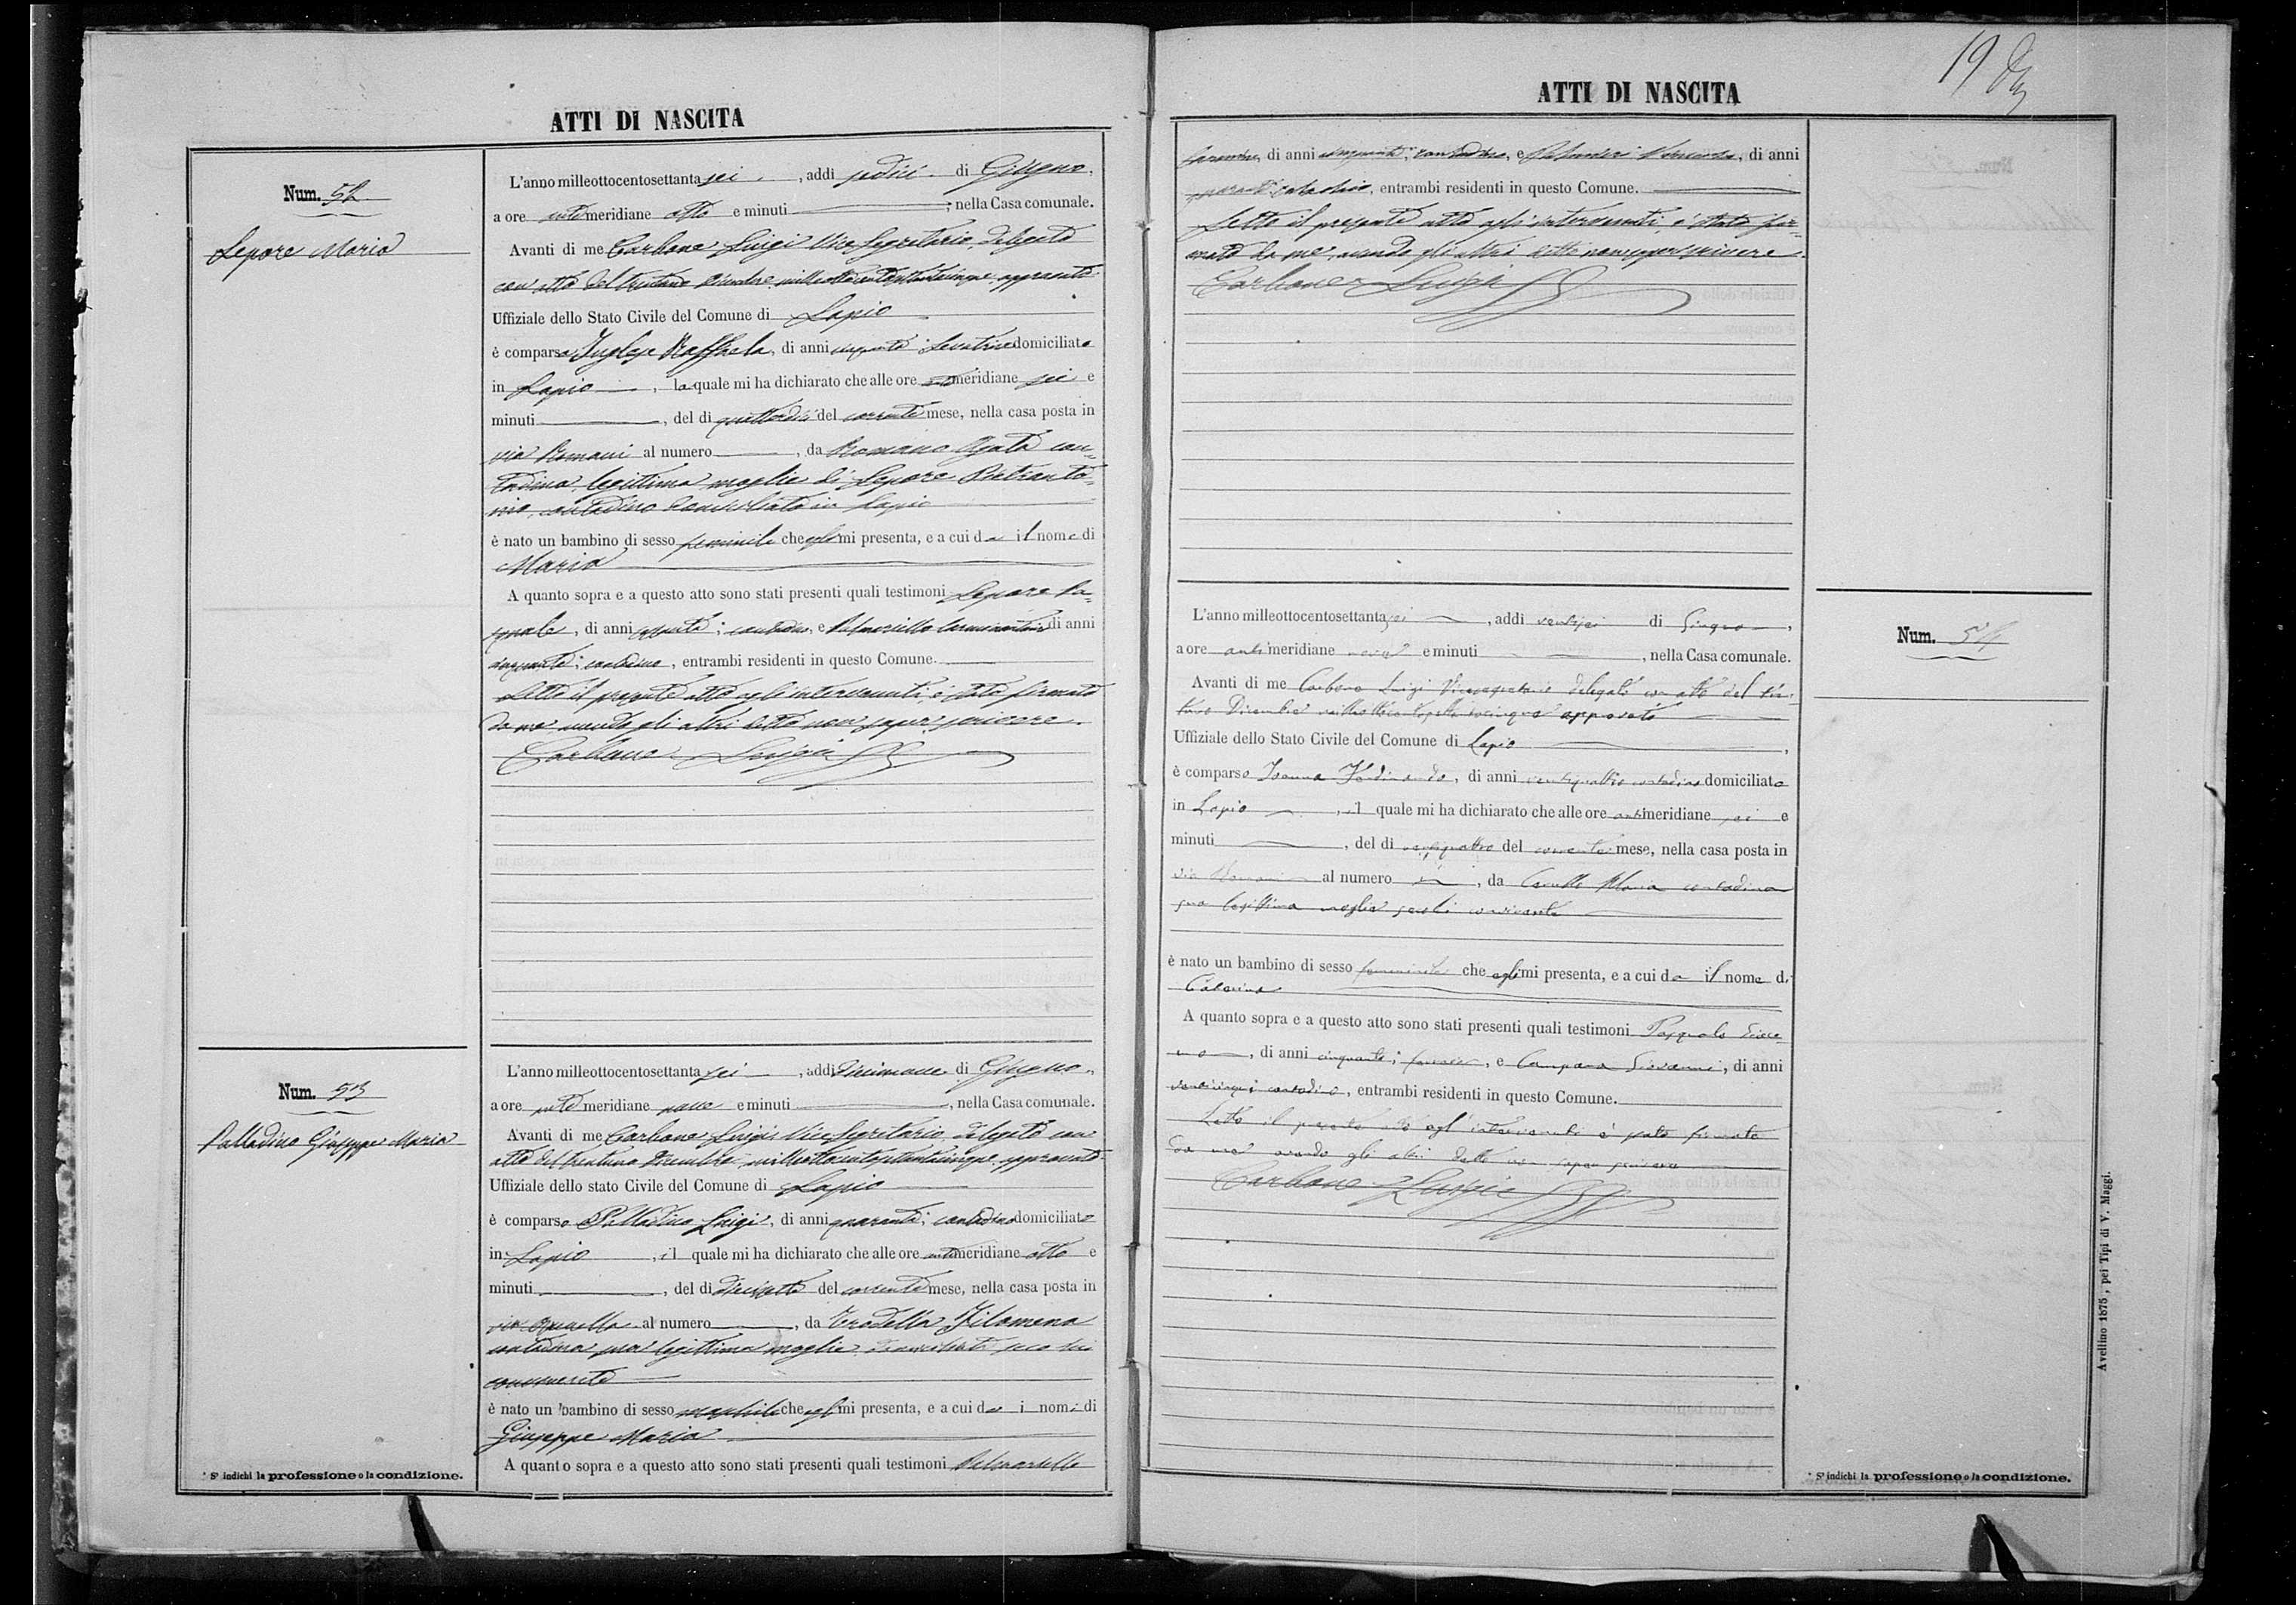 ATTI DI NASCITA
Num. 52
Lepore Maria
L'anno milleottocentosettanta sei, addì sedici di Giugno,
a ore anti meridiane otto e minuti, nella Casa comunale.
Avanti di me Carbone Luigi Vice Segretario, delegato
con atto del trentuno Dicembre milleottocentosettantacinque approvato
Uffiziale dello Stato Civile del Comune di Lapio
è comparsa Inglese Raffaela, di anni levatrice domiciliata
in Lapio, la quale mi ha dichiarato che alle ore meridiane sei e
minuti, del dì quattordici del corrente mese, nella casa posta in
via Romani al numero, da Romano Agata con-
tadina, legittima moglie di Lepore Pietranto-
nio, contadino domiciliato in Lapio
è nato un bambino di sesso femminile che mi presenta, e a cui da il nome di
Maria
A quanto sopra e a questo atto sono stati presenti quali testimoni Lepore Pa-
squale, di anni contadino, e di anni
cinquanta, contadino, entrambi residenti in questo Comune.
Letto il presente atto agli intervenuti, è stato firmato
da me avendo gli altri detto non saper scrivere.
Carbone Luigi
Num. 53
Palladino Giuseppe Maria
L'anno milleottocentosettanta sei, addì diecinove di Giugno,
a ore anti meridiane nove e minuti, nella Casa comunale.
Avanti di me Carbone Luigi Vice Segretario, delegato con
atto del trentuno Dicembre milleottocentosettantacinque approvato
Uffiziale dello stato Civile del Comune di Lapio
è comparso Palladino Luigi, di anni quaranta, contadino domiciliato
in Lapio, il quale mi ha dichiarato che alle ore antimeridiane otto e
minuti, del dì diecisette del corrente mese, nella casa posta in
via al numero, da Filomena
contadina sua legittima moglie seco lui
convivente
è nato un bambino di sesso maschile che egli mi presenta, e a cui da i nomi di
Giuseppe Maria
A quanto sopra e a questo atto sono stati presenti quali testimoni
* Si indichi la professione o la condizione.
19
ATTI DI NASCITA
di anni cinquanta, contadino, e di anni
entrambi residenti in questo Comune.
Letto il presente atto agli intervenuti, è stato fir-
mato da me, avendo gli altri detto non saper scrivere.
Carbone Luigi
Num. 54
L'anno milleottocentosettanta sei, addì ventisei di Giugno,
a ore anti meridiane e minuti, nella Casa comunale.
Avanti di me Carbone Luigi Vicesegretario delegato con atto del tren-
tuno Dicembre milleottocentosettantacinque approvato
Uffiziale dello Stato Civile del Comune di Lapio,
è comparso Ferdinando, di anni ventiquattro contadino domiciliato
in Lapio, il quale mi ha dichiarato che alle ore antimeridiane sei e
minuti, del dì ventiquattro del corrente mese, nella casa posta in
via Romani al numero, da Maria contadina
sua legittima moglie seco lui convivente
è nato un bambino di sesso femminile che egli mi presenta, e a cui da il nome di
Caterina
A quanto sopra e a questo atto sono stati presenti quali testimoni Pasquale
di anni cinquanta, e Campana Giovanni, di anni
venticinque contadino, entrambi residenti in questo Comune.
Letto il presente atto agl'intervenuti è stato firmato
da me avendo gli altri detto non saper scrivere
Carbone Luigi
* Si indichi la professione o la condizione.
Avellino 1875, pei Tipi di V. Maggi.